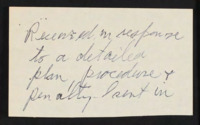 Received in response
to a detailed
plan, procedure &
penalty I sent in